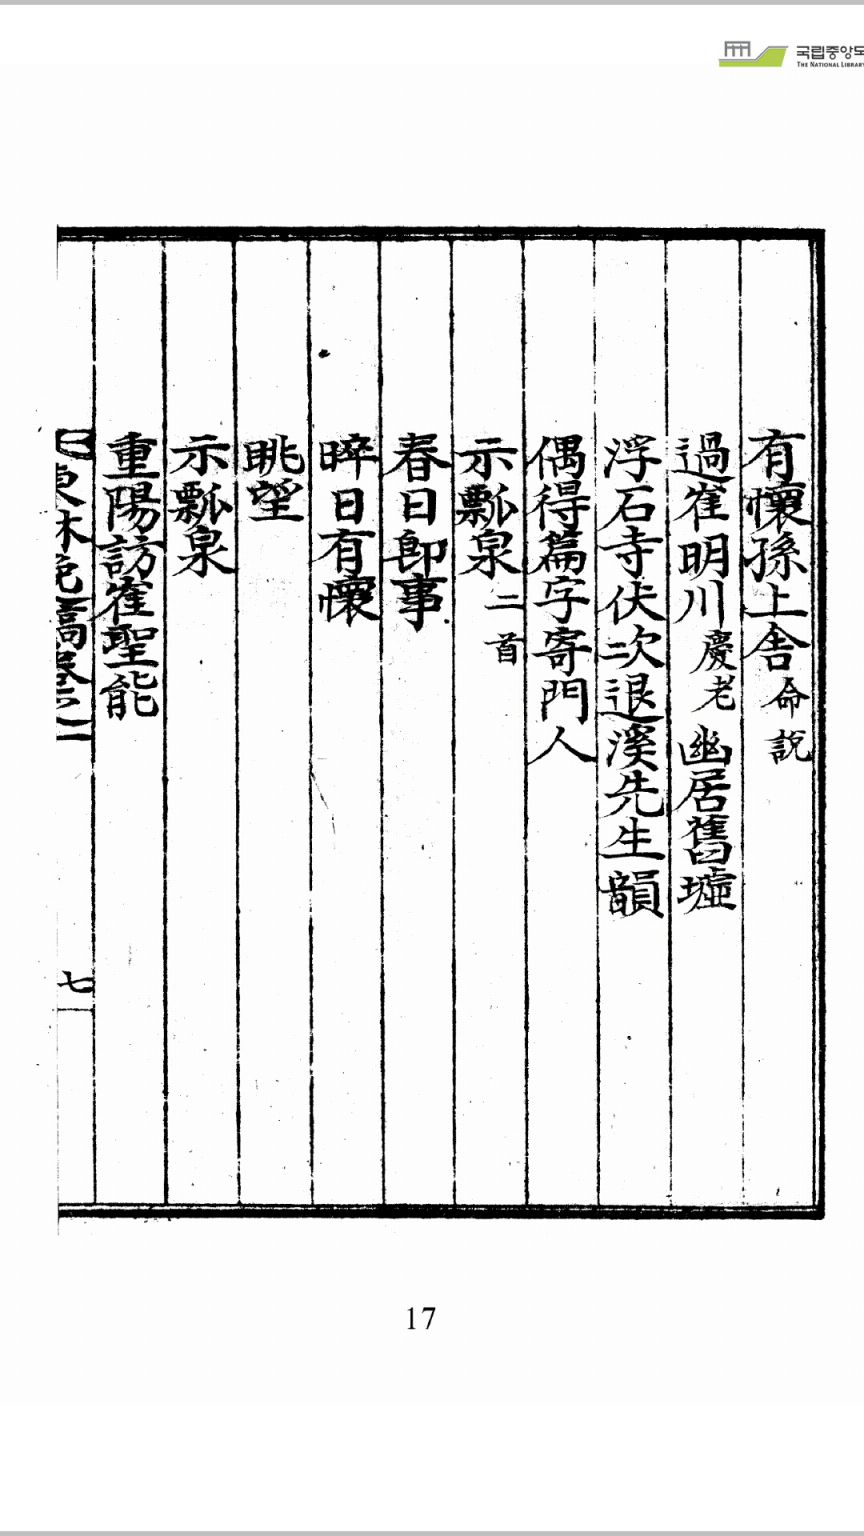 국립중앙도
THE NATIONAL LIBRARY
有懷孫上舍命說
過崔明川慶老幽居舊墟
浮石寺伏次退溪先生韻
偶得篇字寄門人
示瓢泉二首
春日卽事
晬日有懷
眺望
示瓢泉
重陽訪崔聖能
七
17